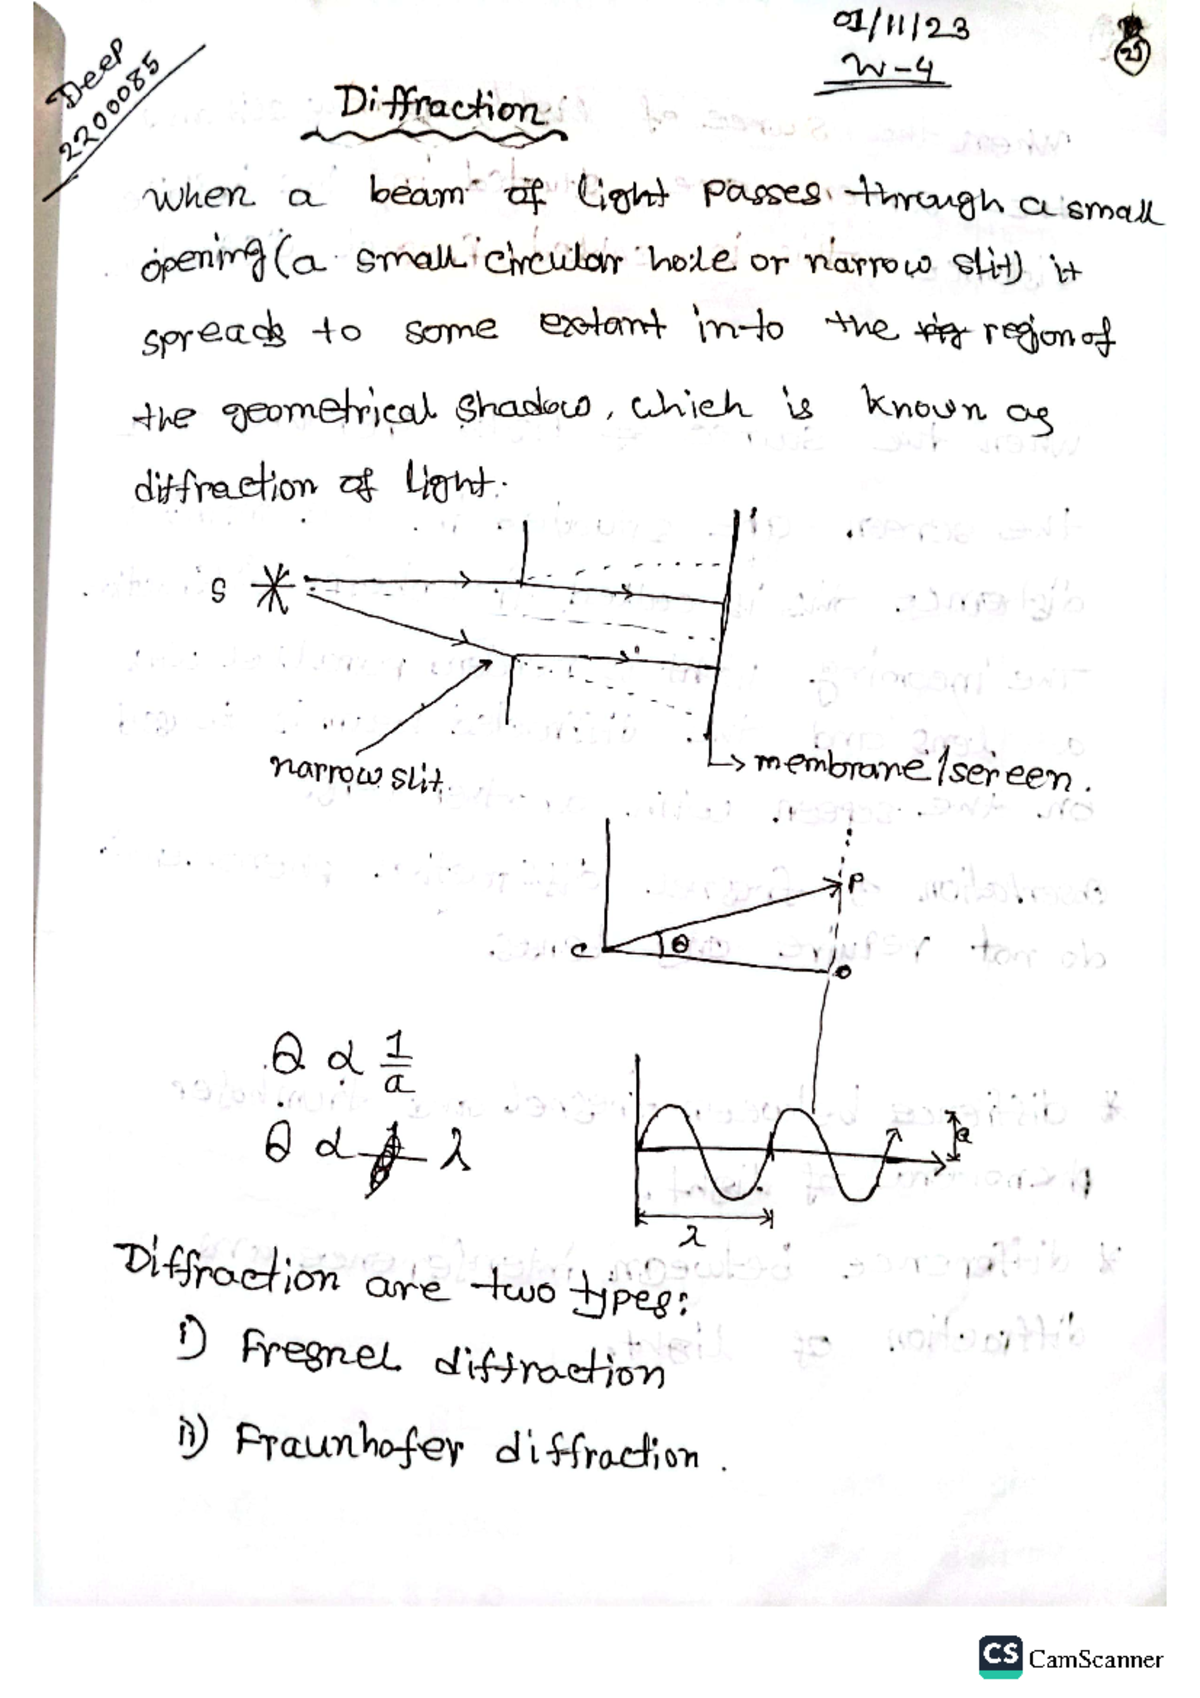 01/11/23
W-4
25
Deep
2200085
Diffraction
When a beam of light passes through a small
opening (a small circular hole or narrow slit) it
spreads to some extant into the region of
the geometrical shadow, which is known as
diffraction of light.
S
narrow slit.
membrane/screen.
P
C θ
O
θ α 1/a
θ α λ
a
λ
Diffraction are two types:
i) Fresnel diffraction
ii) Fraunhofer diffraction.
CS CamScanner